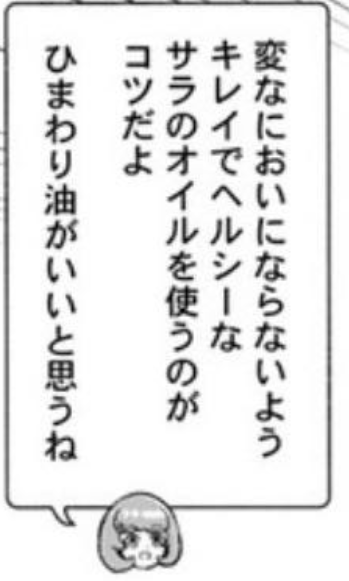 変なにおいにならないよう
キレイでヘルシーな
サラのオイルを使うのが
コツだよ
ひまわり油がいいと思うね